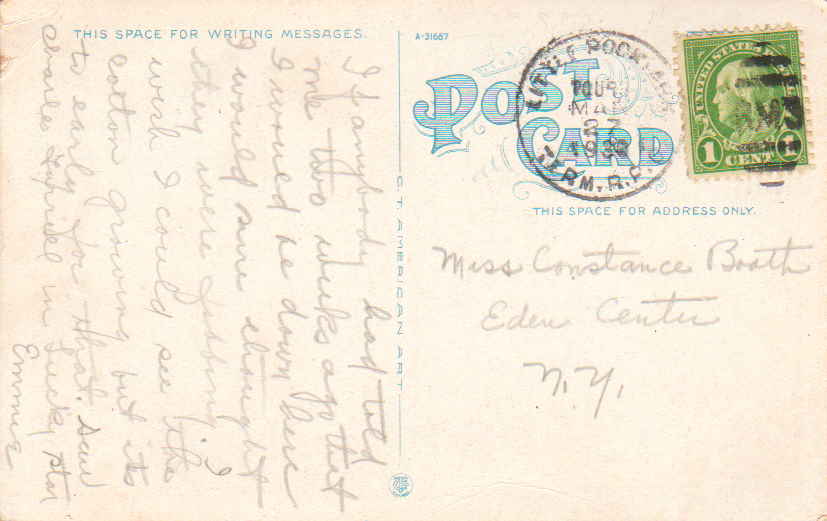 THIS SPACE FOR WRITING MESSAGES.
A-31687
POST
CARD
THIS SPACE FOR ADDRESS ONLY.
LITTLE ROCK
TOUR
MAR
27
TERM. R.P.
UNITED STATES
1 CENT 1
C.T. AMERICAN ART
If anybody had told
me two weeks ago that
I would be down here
I would sure thought
they were fibbing. I
wish I could see the
cotton growing but its
to early for that. Saw
Charles in Lucky Star
Emmie
Miss Constance Booth
Eden Center
N.Y.